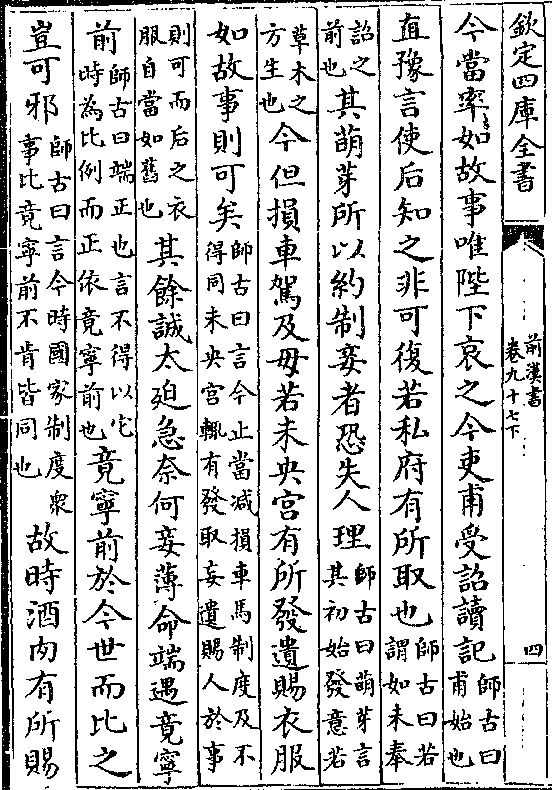 欽定四庫全書
前漢書
卷九十七下
四
今當率如故事唯陛下哀之今吏甫受詔讀記師古曰甫始也
直豫言使后知之非可復若私府有所取也師古曰若謂如未奉
詔之前也其萌芽所以約制妾者恐失人理師古曰萌芽言其初始發意若
草木之方生也今但損車駕及毋若未央宮有所發遺賜衣服
如故事則可矣師古曰言今止當減損車馬制度及不得同未央宮輒有發取妄遺賜人於事
則可而后之衣服自當如舊也其餘誠太迫急奈何妾薄命端遇竟寧
前師古曰端正也言不得以它時為比例而正依竟寧前也竟寧前於今世而比之
豈可邪師古曰言今時國家制度衆事比竟寧前不肯皆同也故時酒肉有所賜